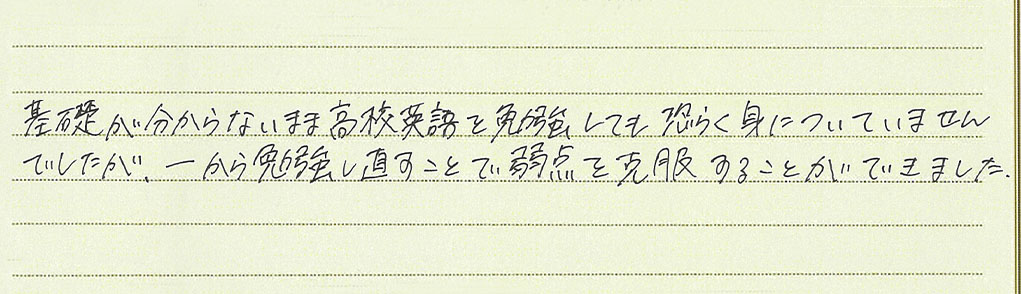 基礎が分からないまま高校英語を勉強しても恐らく身についていません
でしたが、一から勉強し直すことで弱点を克服することができました.